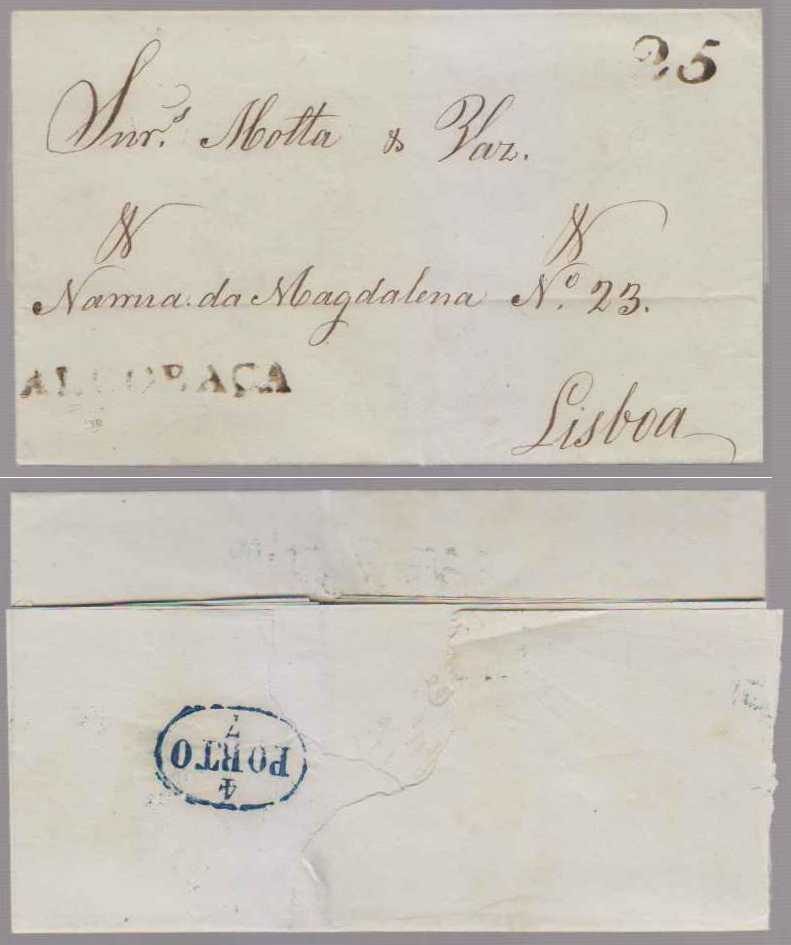 25
Snr.s Motta & Vaz.
Narrua. da Magdalena N.o 23.
ALCOBAÇA
Lisboa
4
PORTO
7